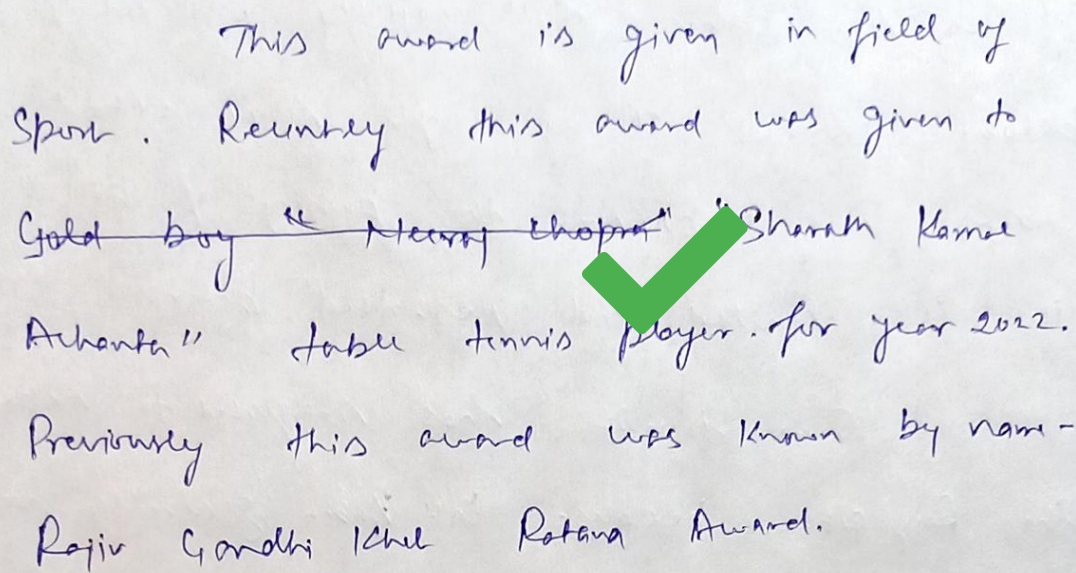 This award is given in field of
Sport. Recuntly this award was given to
Gold boy " Neeraj Chopra" "Sharath Kamal
Achanta" table tennis player. for year 2022.
Previously this award was known by name-
Rajiv Gandhi Khel Ratana Award.